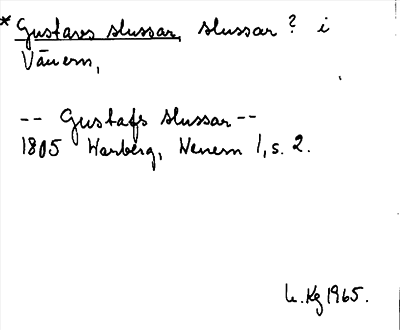 *Gustavs slussar, slussar? i
Vänern,
-- Gustafs slussar --
1805 Warberg, Wenern 1, s. 2.
L. Kg 1965.